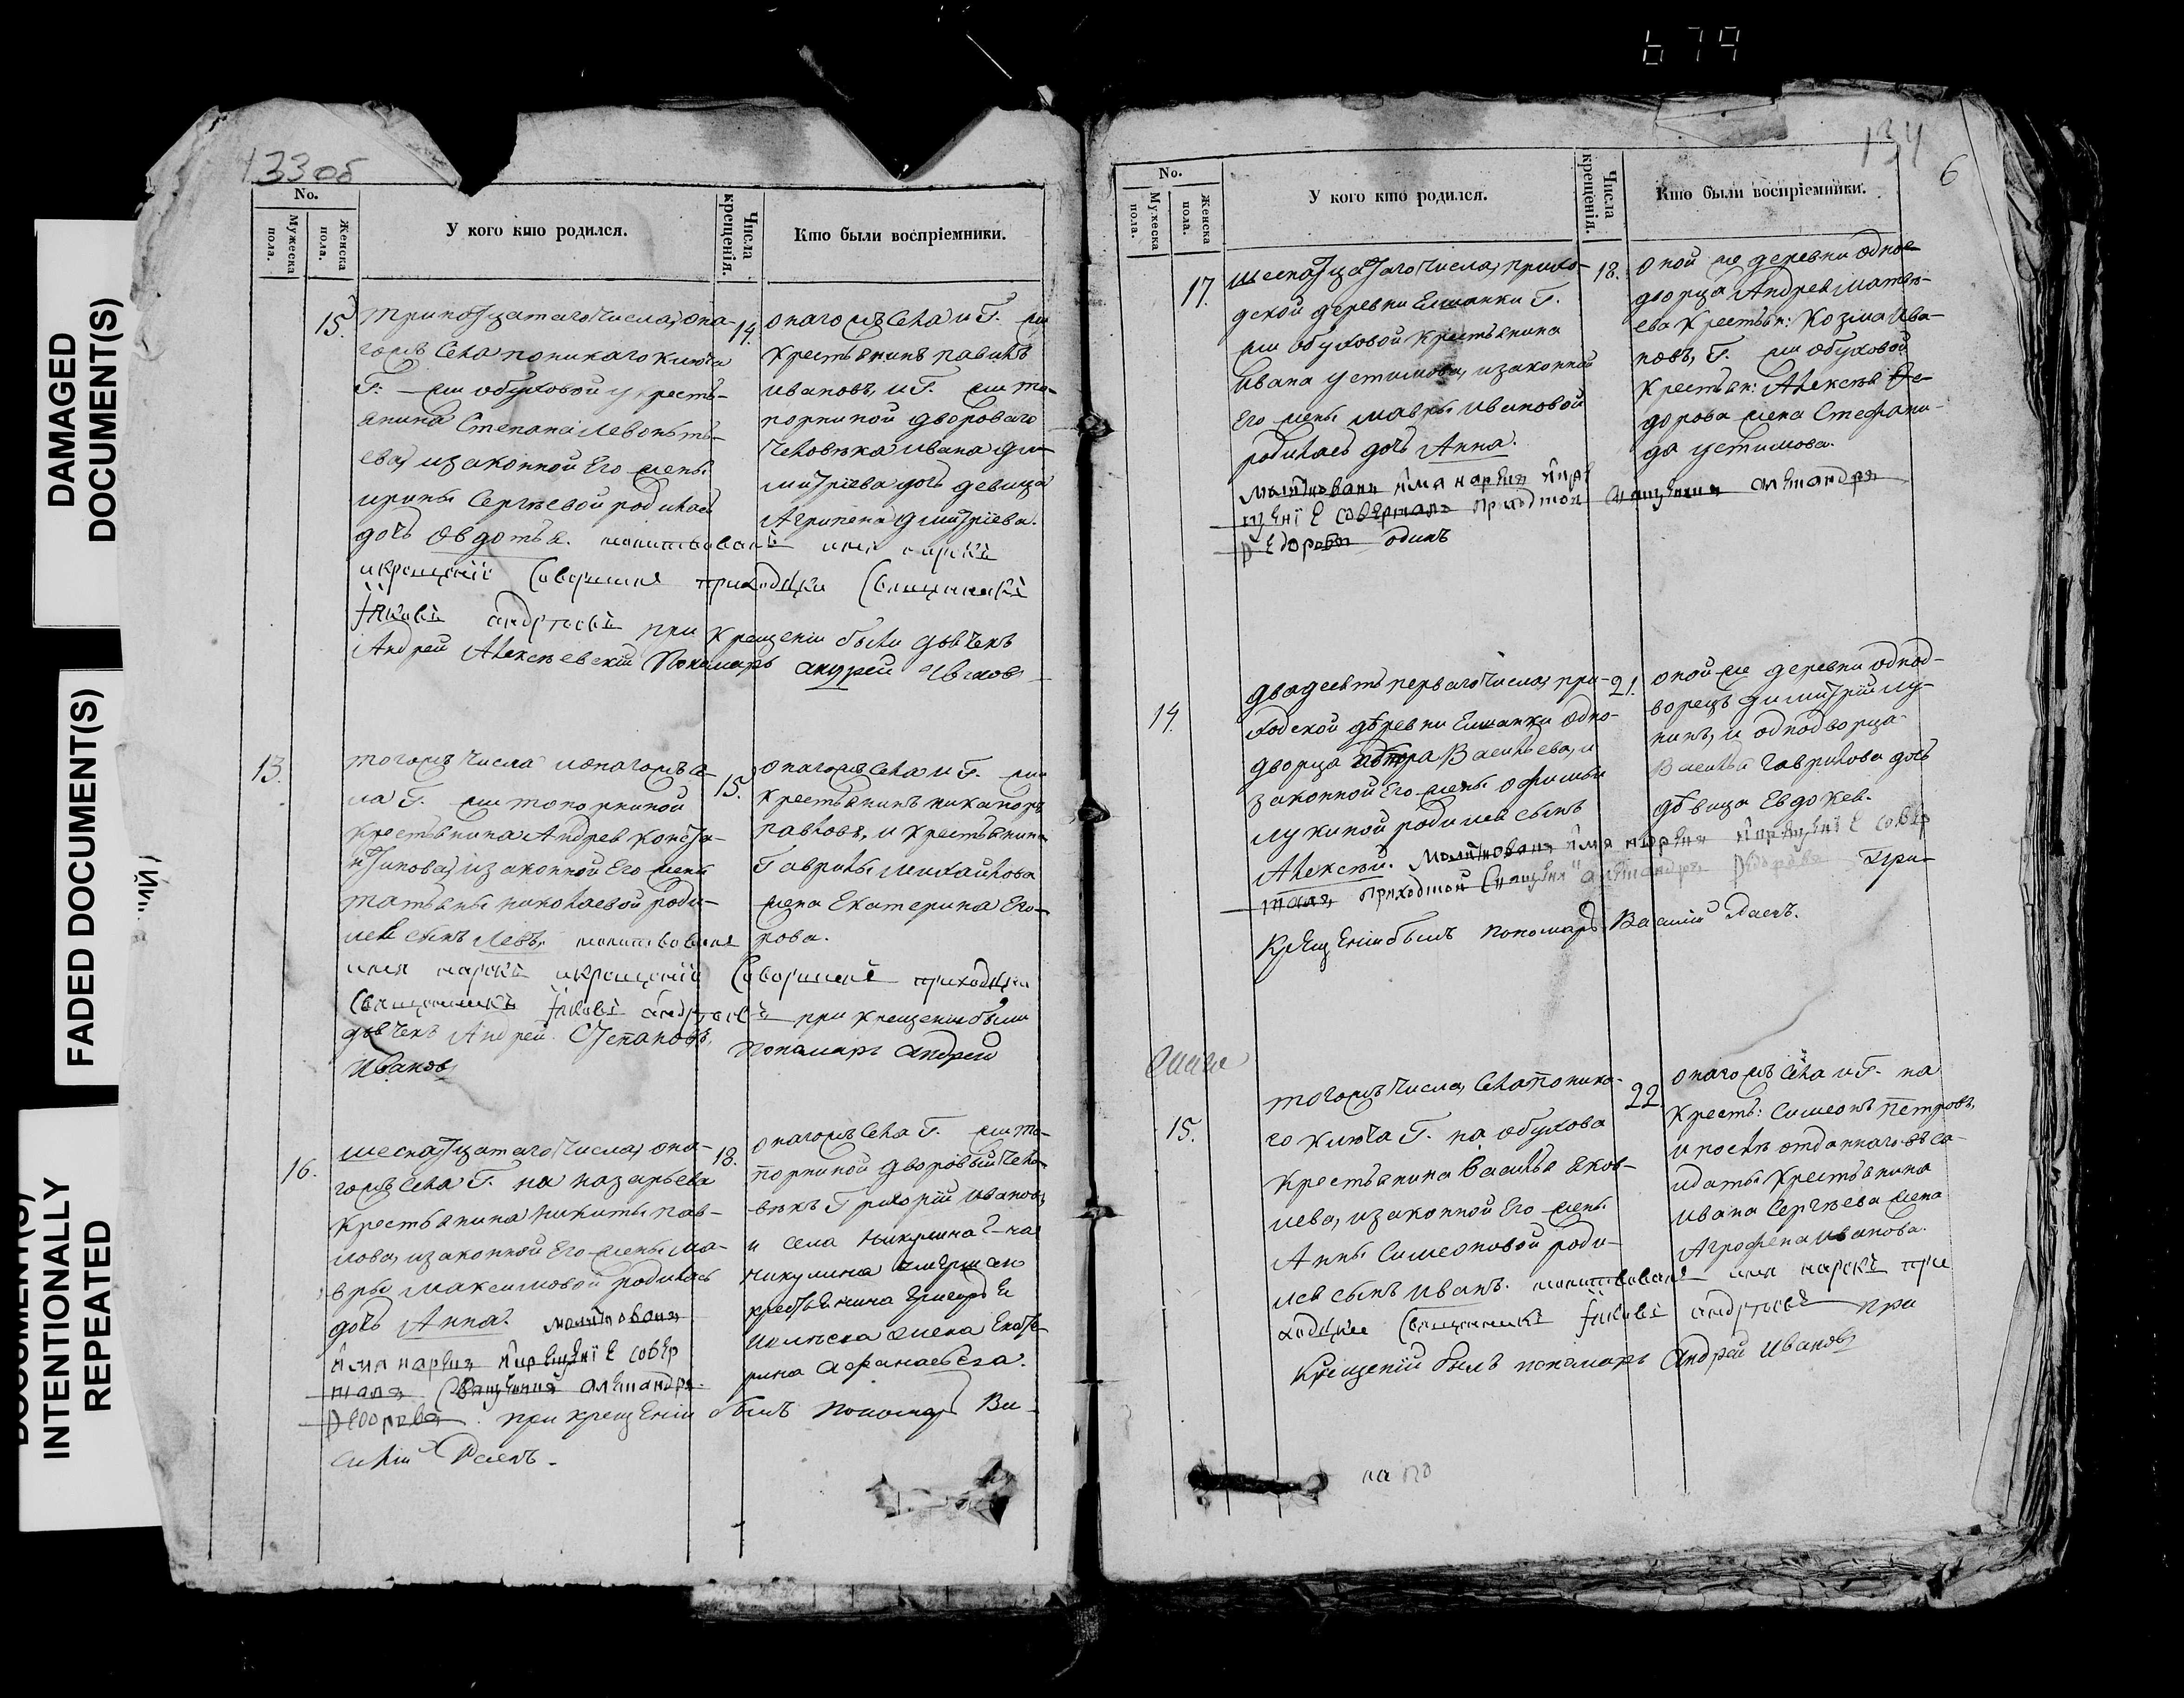 679
DAMAGED
DOCUMENT(S)
FADED DOCUMENT(S)
DOCUMENT(S)
INTENTIONALLY
REPEATED
133 об
No.
Мужеска пола.
Женска пола.
У кого кто родился.
Числа крещенія.
Кто были воспріемники.
15.
тринатцатаго числа, она-
гожъ села поникаго ключа
Г. обуховой у кресть-
янина Степана Левонтье-
ева, изаконной Его жены
ирины Сергѣевой родилась
дочь Овдотья. молитвовалъ имя нарекъ
икрещеніе Совершилъ приходцки Священникъ
Іяковъ андреевъ при крещеніи были дьячекъ
Андрей Алексѣевский Пономарь андрей Иванов
14.
онагожъ села и Г. жи
крестьянинъ павилъ
ивановъ, и Г. жи то-
порниной двороваго
человѣка ивана ди-
митріева дочь девица
Агрипена димитріева.
13.
тогожъ числа ионагожъ се-
ла Г. жи топорниной
крестьянина Андрея конста-
нтинова, изаконной Его жены
татьяны николаевой роди-
лся сынъ Левъ, молитвовалъ
имя нарекъ икрещеніе Совершилъ приходцки
Священникъ Іяковъ андреевъ при крещеніи были
дьячекъ Андрей Степановъ, пономарь андрей
Иванов
15.
онагожъ села и Г. жи
крестьянинъ никаноръ
павловъ, и крестьянина
Гаврилы михайлова
жена Екатерина Его-
рова.
16.
шеснатцатаго числа, она-
гожъ села Г. на назарьева
крестьянина никиты пав-
лова, изаконной Его жены ма-
вры максимовой родилась
дочь Анна. молитвовалъ
имя нарекъ икрещеніе совер
шалъ Священникъ алеѯандръ
Ѳеодоровъ. при крещеніи былъ пономарь Ва-
силій Раевъ.
18.
онагожъ села Г. жи то-
порниной дворовый чело-
вѣкъ Григорій ивановъ,
и села никулина Г-на
никулина
крестьянина Григорья
жена Екате-
рина Афанасьева.
134
6
No.
Мужеска пола.
Женска пола.
У кого кто родился.
Числа крещенія.
Кто были воспріемники.
17.
шеснатцатаго числа, прихо-
дской деревни Ешанки Г.
жи обуховой крестьянина
ивана устимова, изаконной
Его жены мавры ивановой
родилась дочь Анна.
молитвовалъ имя нарекъ икре
щеніе совершалъ приходской Священникъ алеѯандръ
Ѳедоровъ одинъ
18.
оной же деревни одно-
дворца Андрея матве-
ева крестьян: козма ива-
новъ, Г. жи обуховой
крестьян: Алексѣя Ѳе-
дорова жена Стефани-
да устимова.
14.
двадесять перваго числа, при-
ходской деревни Ешанки одно-
дворца Петра Васильева, и
законной Его жены офимьи
лукиной родился сынъ
Алексѣй. молитвовалъ имя нарекъ икрещеніе совер
шалъ приходской Священникъ алеѯандръ Ѳедоровъ при
крещеніи былъ пономарь Василій Раевъ.
21.
оной же деревни однод-
ворецъ димитрій лу-
кинъ, и однодворца
Василья Гаврилова дочь
дѣвица Евдокея.
15.
тогожъ числа, села поника-
го ключа Г. на обухова
крестьянина Василья яков-
лева, изаконной Его жены
Анны Симеоновой роди-
лся сынъ иванъ. молитвовалъ имя нарекъ при
ходцкие Священникъ Іяковъ андреевъ при
крещеніи былъ пономарь андрей Иванов
22.
онагожъ села и Г. на
крест: Симеонъ петровъ,
и послѣ отданнаго въ со-
лдаты крестьянина
ивана Сергѣева жена
Агрофена иванова.
на по